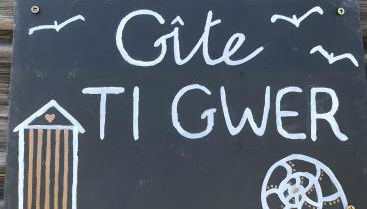 Gîte
TI GWER